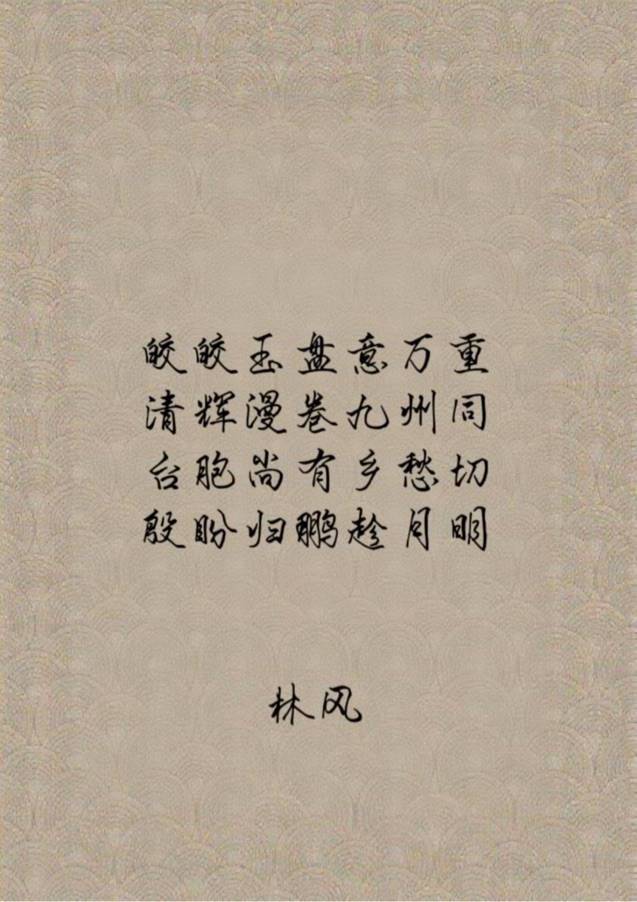 皎皎玉盘意万重
清辉漫卷九州同
台胞尚有乡愁切
殷盼归鹏趁月明
林风